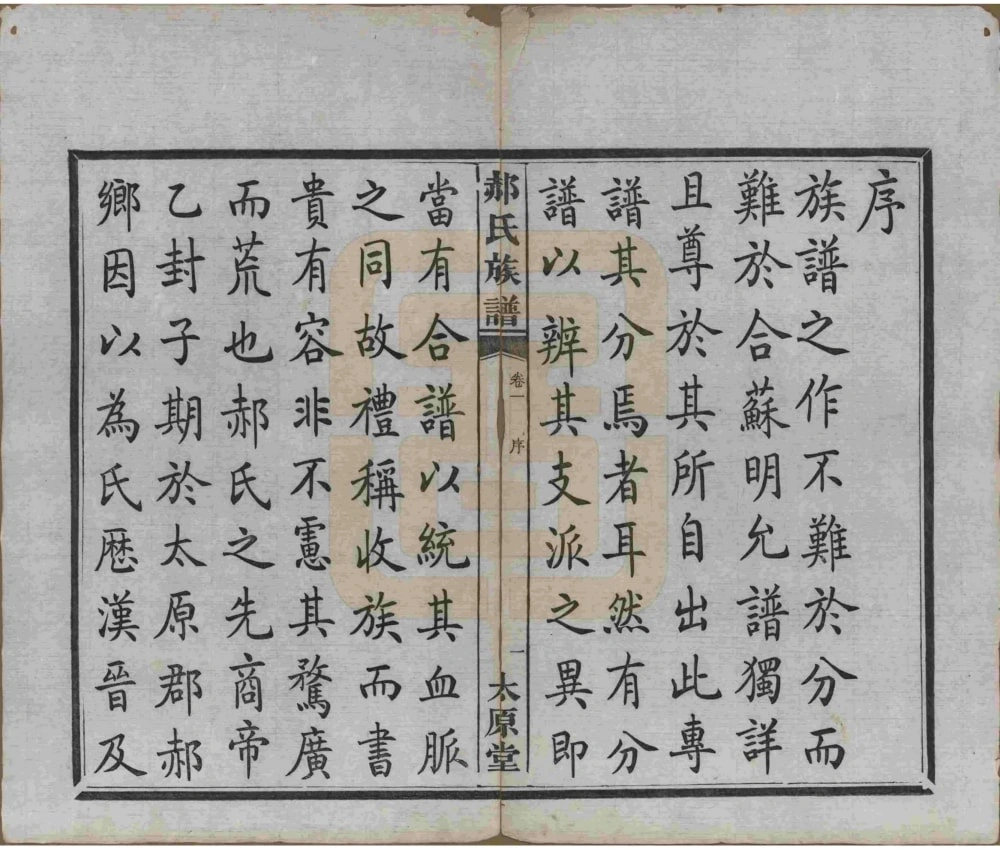 序
族譜之作不難於分而
難於合蘇明允譜獨詳
且尊於其所自出此專
譜其分焉者耳然有分
譜以辨其支派之異即
郝氏族譜 卷一 序 一 太原堂
當有合譜以統其血脈
之同故禮稱收族而書
貴有容非不慮其騖廣
而荒也郝氏之先商帝
乙封子期於太原郡郝
鄉因以為氏歷漢晉及